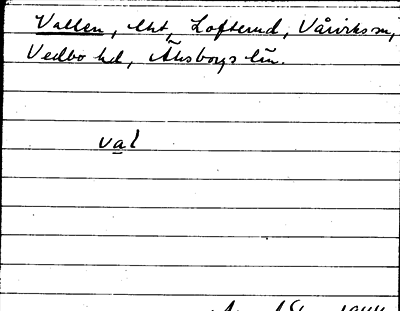 Vallen, lht, Lofterud, Vårviks sn,
Vedbo hd, Älvsborgs län.
val